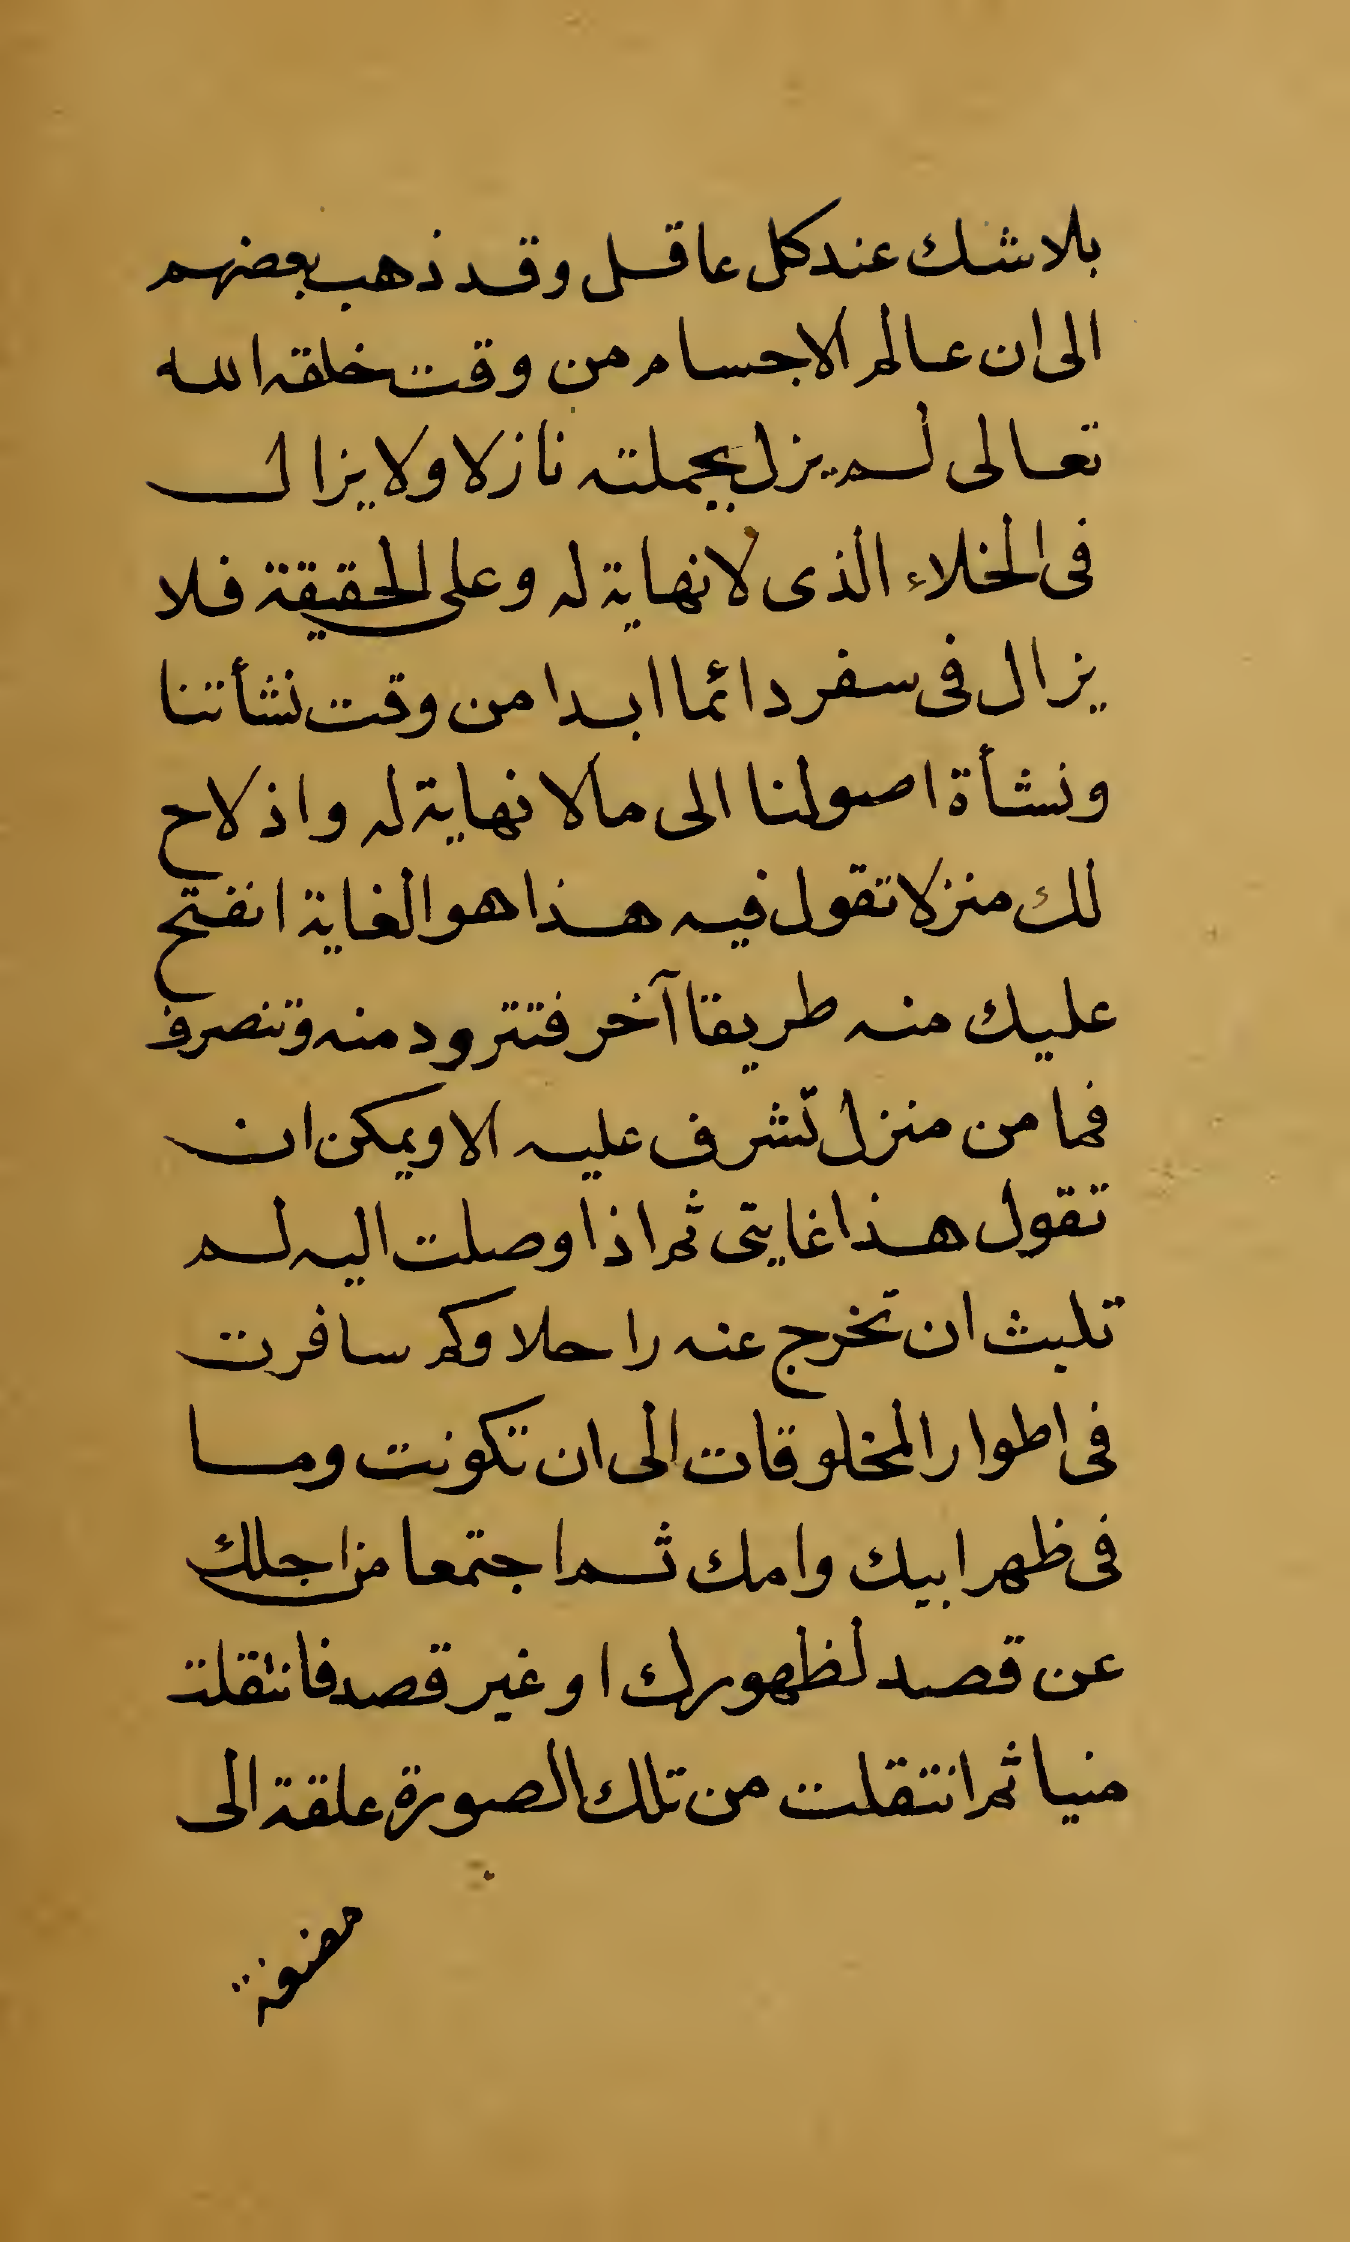 بلا شك عند كل عاقل وقد ذهب بعضهم
الى ان عالم الاجسام من وقت خلقه الله
تعالى لم يزل بجملته نازلا ولا يزال
فى الخلاء الذى لا نهاية له وعلى الحقيقة فلا
يزال فى سفر دائما ابدا من وقت نشأتنا
ونشأة اصولنا الى مالا نهاية له واذ لاح
لك منزلا تقول فيه هذا هو الغاية انفتح
عليك منه طريقا آخر فتترود منه وتنصرف
فما من منزل تشرف عليه الا ويمكن ان
تقول هذا غايتى ثم اذا وصلت اليه لم
تلبث ان تخرج عنه راحلا وكم سافرت
فى اطوار المخلوقات الى ان تكونت وما
فى ظهر ابيك وامك ثم اجتمعا من اجلك
عن قصد لظهورك او غير قصد فانتقلت
منيا ثم انتقلت من تلك الصورة علقة الى
مضغة